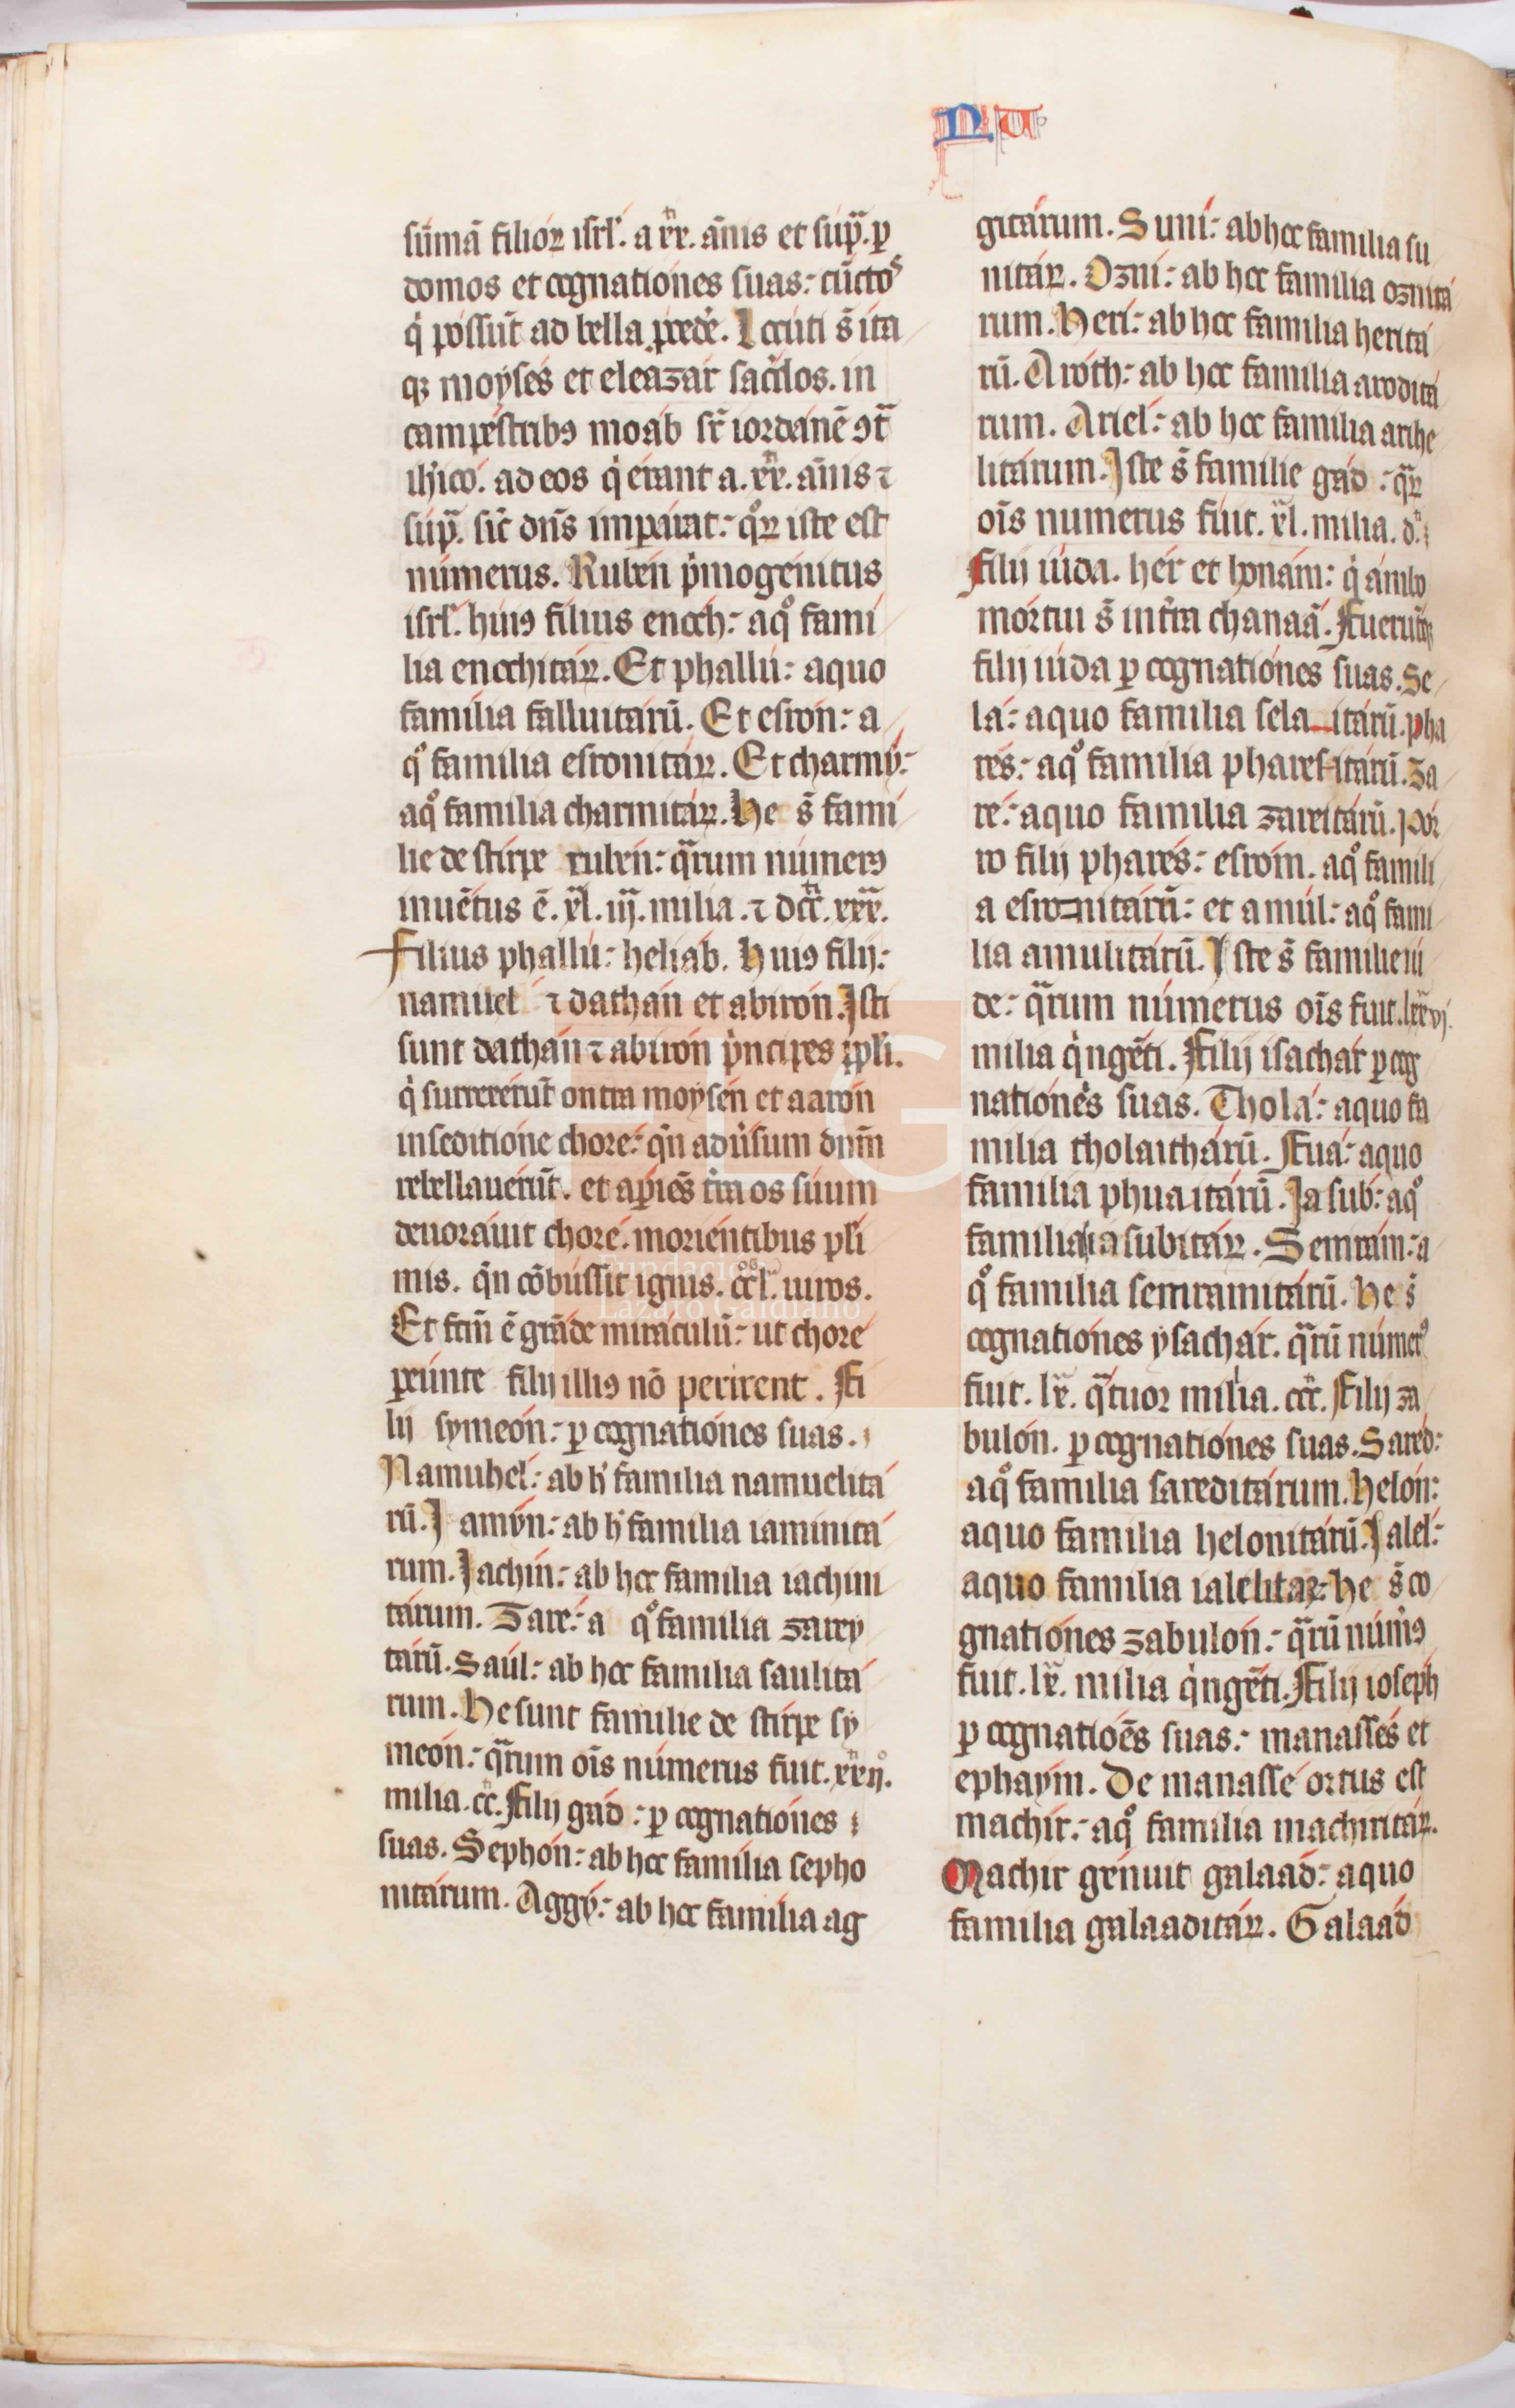 NU
sūmā filioꝝ isrl̄. a xxͭⁱ. ānis et sup̄. ꝑ
domos et cognationes suas: cūctoˢ
qͥ possūt ad bella ꝓcedͤe. Locuti s̄ ita
qꝫ moyses et eleazar sac̄dos. in
campestribꝰ moab sr̄ iordanē ꝯtᷓ
ihico. ad eos qͥ erant a. xxͭⁱ. ānis ⁊
supᷓ. sic̄ dn̄s impauat: qͦꝝ iste est
numerus. Ruben pͥmogenitus
isrl̄. huiꝰ filius enoch: aqͦ fami
lia enochitaꝝ. Et phallu: aquo
familia falluitarū. Et esron: a
qͦ familia esronitaꝝ. Et charmy:
aqͦ familia charmitaꝝ. He s̄ fami
lie de stirpe ruben: qᷓrum numerꝰ
inuētus ē. xl. iij. milia. ⁊ dcc. xxx.
Filius phallu: heliab. Huiꝰ filij:
namuel ⁊ dathan et abiron. Isti
sunt dathan ⁊ abiron pͥncipes ppl̄i.
qͥ surrexerūt ontra moysen et aaron
in seditione chore: qn̄ adūsum dnm̄
rebellauerūt. et apiēs tr̄ra os suum
deuorauit chore. morientibus pl̄i
mis. qn̄ cōbussit ignis. ccͦl. uiros.
Et fcm̄ ē grāde miraculū: ut chore
pereunte filij illiꝰ nō perirent. Fi
lij symeon: ꝑ cognationes suas.
Namuhel: ab hͦ familia namuelita
rū. Iamyn: ab hͦ familia iaminita
rum. Iachin: ab hoc familia iachini
tarum. Zare: a qͦ familia zarey
tarū. Saul: ab hoc familia saulita
rum. He sunt familie de stirpe sy
meon: qᷓrum oīs numerus fuit. xxijͦ.
milia. cc. Filij gad: ꝑ cognationes
suas. Sephon: ab hoc familia sepho
nitarum. Aggy: ab hoc familia ag
gitarum. Suni: ab hoc familia su
nitaꝝ. Ozni: ab hoc familia oznita
rum. Heri: ab hoc familia herita
rū. Aroth: ab hoc familia arodita
rum. Ariel: ab hoc familia arihe
litarum. Iste s̄ familie gad: qᷓꝝ
oīs numerus fuit. xl. milia. dͥ.
Filij iuda. her et honam: qͥ ambo
mortui s̄ in tr̄ra chanaā. Fuerūtqꝫ
filij iuda ꝑ cognationes suas. Se
la: aquo familia sela itarū. pha
res: aqͦ familia pharesitarū. Za
re: aquo familia zareitarū. Por
ro filij phares: esrom. aqͦ famili
a esronitarū: et amul: aqͦ fami
lia amulitarū. Iste s̄ familie iu
de: qᷓrum numerus oīs fuit. lxxvj.
milia qͥngēti. Filij isachar ꝑ cog
nationes suas. Thola: aquo fa
milia tholaitharū. Fua: aquo
familia phuaitarū. Iasub: aqͦ
familia iasubitaꝝ. Semram: a
qͦ familia semramitarū. He s̄
cognationes ysachar. qᷓrū numerꝰ
fuit. lx. qᷓtuor milia. ccc. Filij za
bulon. ꝑ cognationes suas. Sared:
aqͦ familia sareditarum. Helon:
aquo familia helonitarū. Ialel:
aquo familia ialelitaꝝ: He s̄ co
gnationes zabulon: qᷓrū num̄ꝰ
fuit. lx. milia qͥngēti. Filij ioseph
ꝑ cognatiōēs suas: manasses et
ephaym. De manasse ortus est
machir: aqͦ familia machiritaꝝ.
Machir genuit galaad: aquo
familia galaaditaꝝ. Galaad
Fundación
Lázaro Galdiano